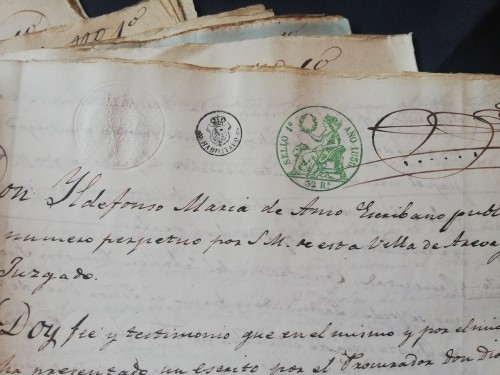 HABILITADO
SELLO 1º AÑO 1855
52 Rs
Don Yldefonso Maria de Amo Escribano publ
numero perpetuo por S.M. de esta Villa de Areva
Juzgado.
Doy fee y testimonio que en el mismo y por el mio
ha presentado un Escrito por el Procurador don Dio